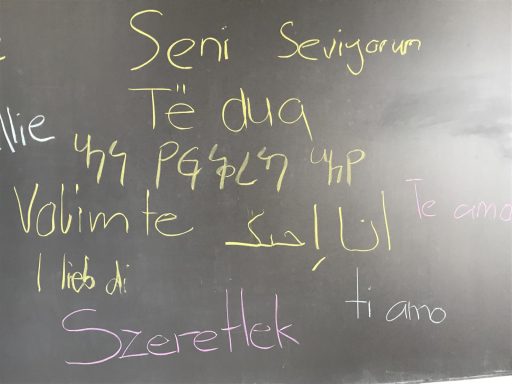 Seni Seviyorum
Të dua
llie
Volim te
انا إحبك
Te amo
I lieb di
ti amo
Szeretlek